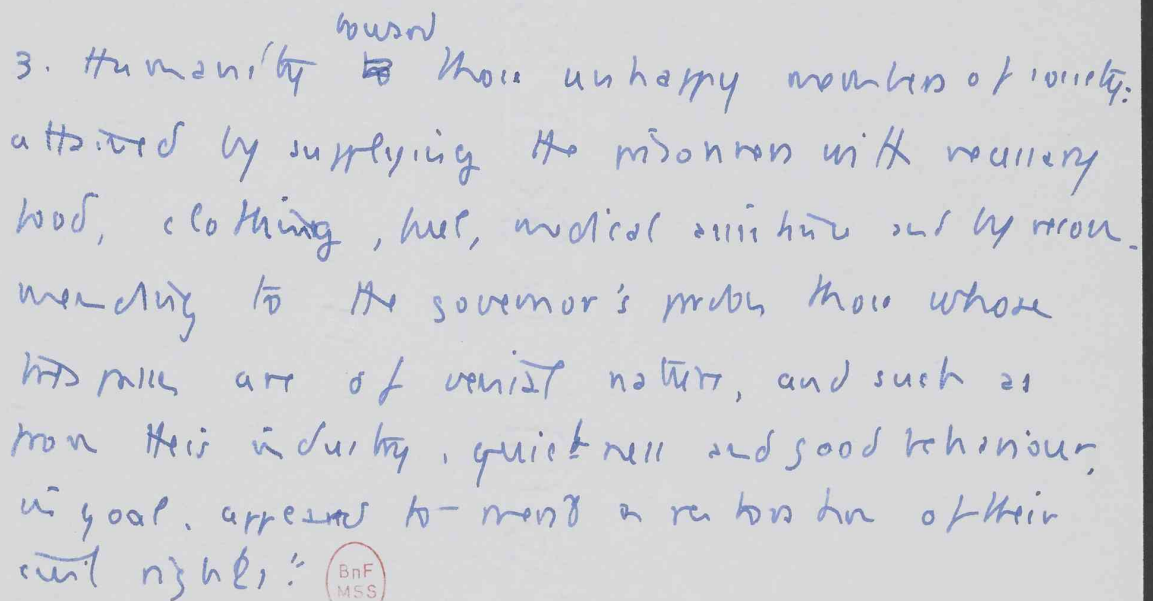 toward
3. Humanity to those unhappy members of society:
attained by supplying the prisoners with necessary
food, clothing, fuel, medical assistance and by recom-
mending to the governor's pardon those whose
are of venial nature, and such as
from their industry, quietness and good behaviour,
in goal, appeared to merit a restoration of their
civil rights."
BnF
MSS